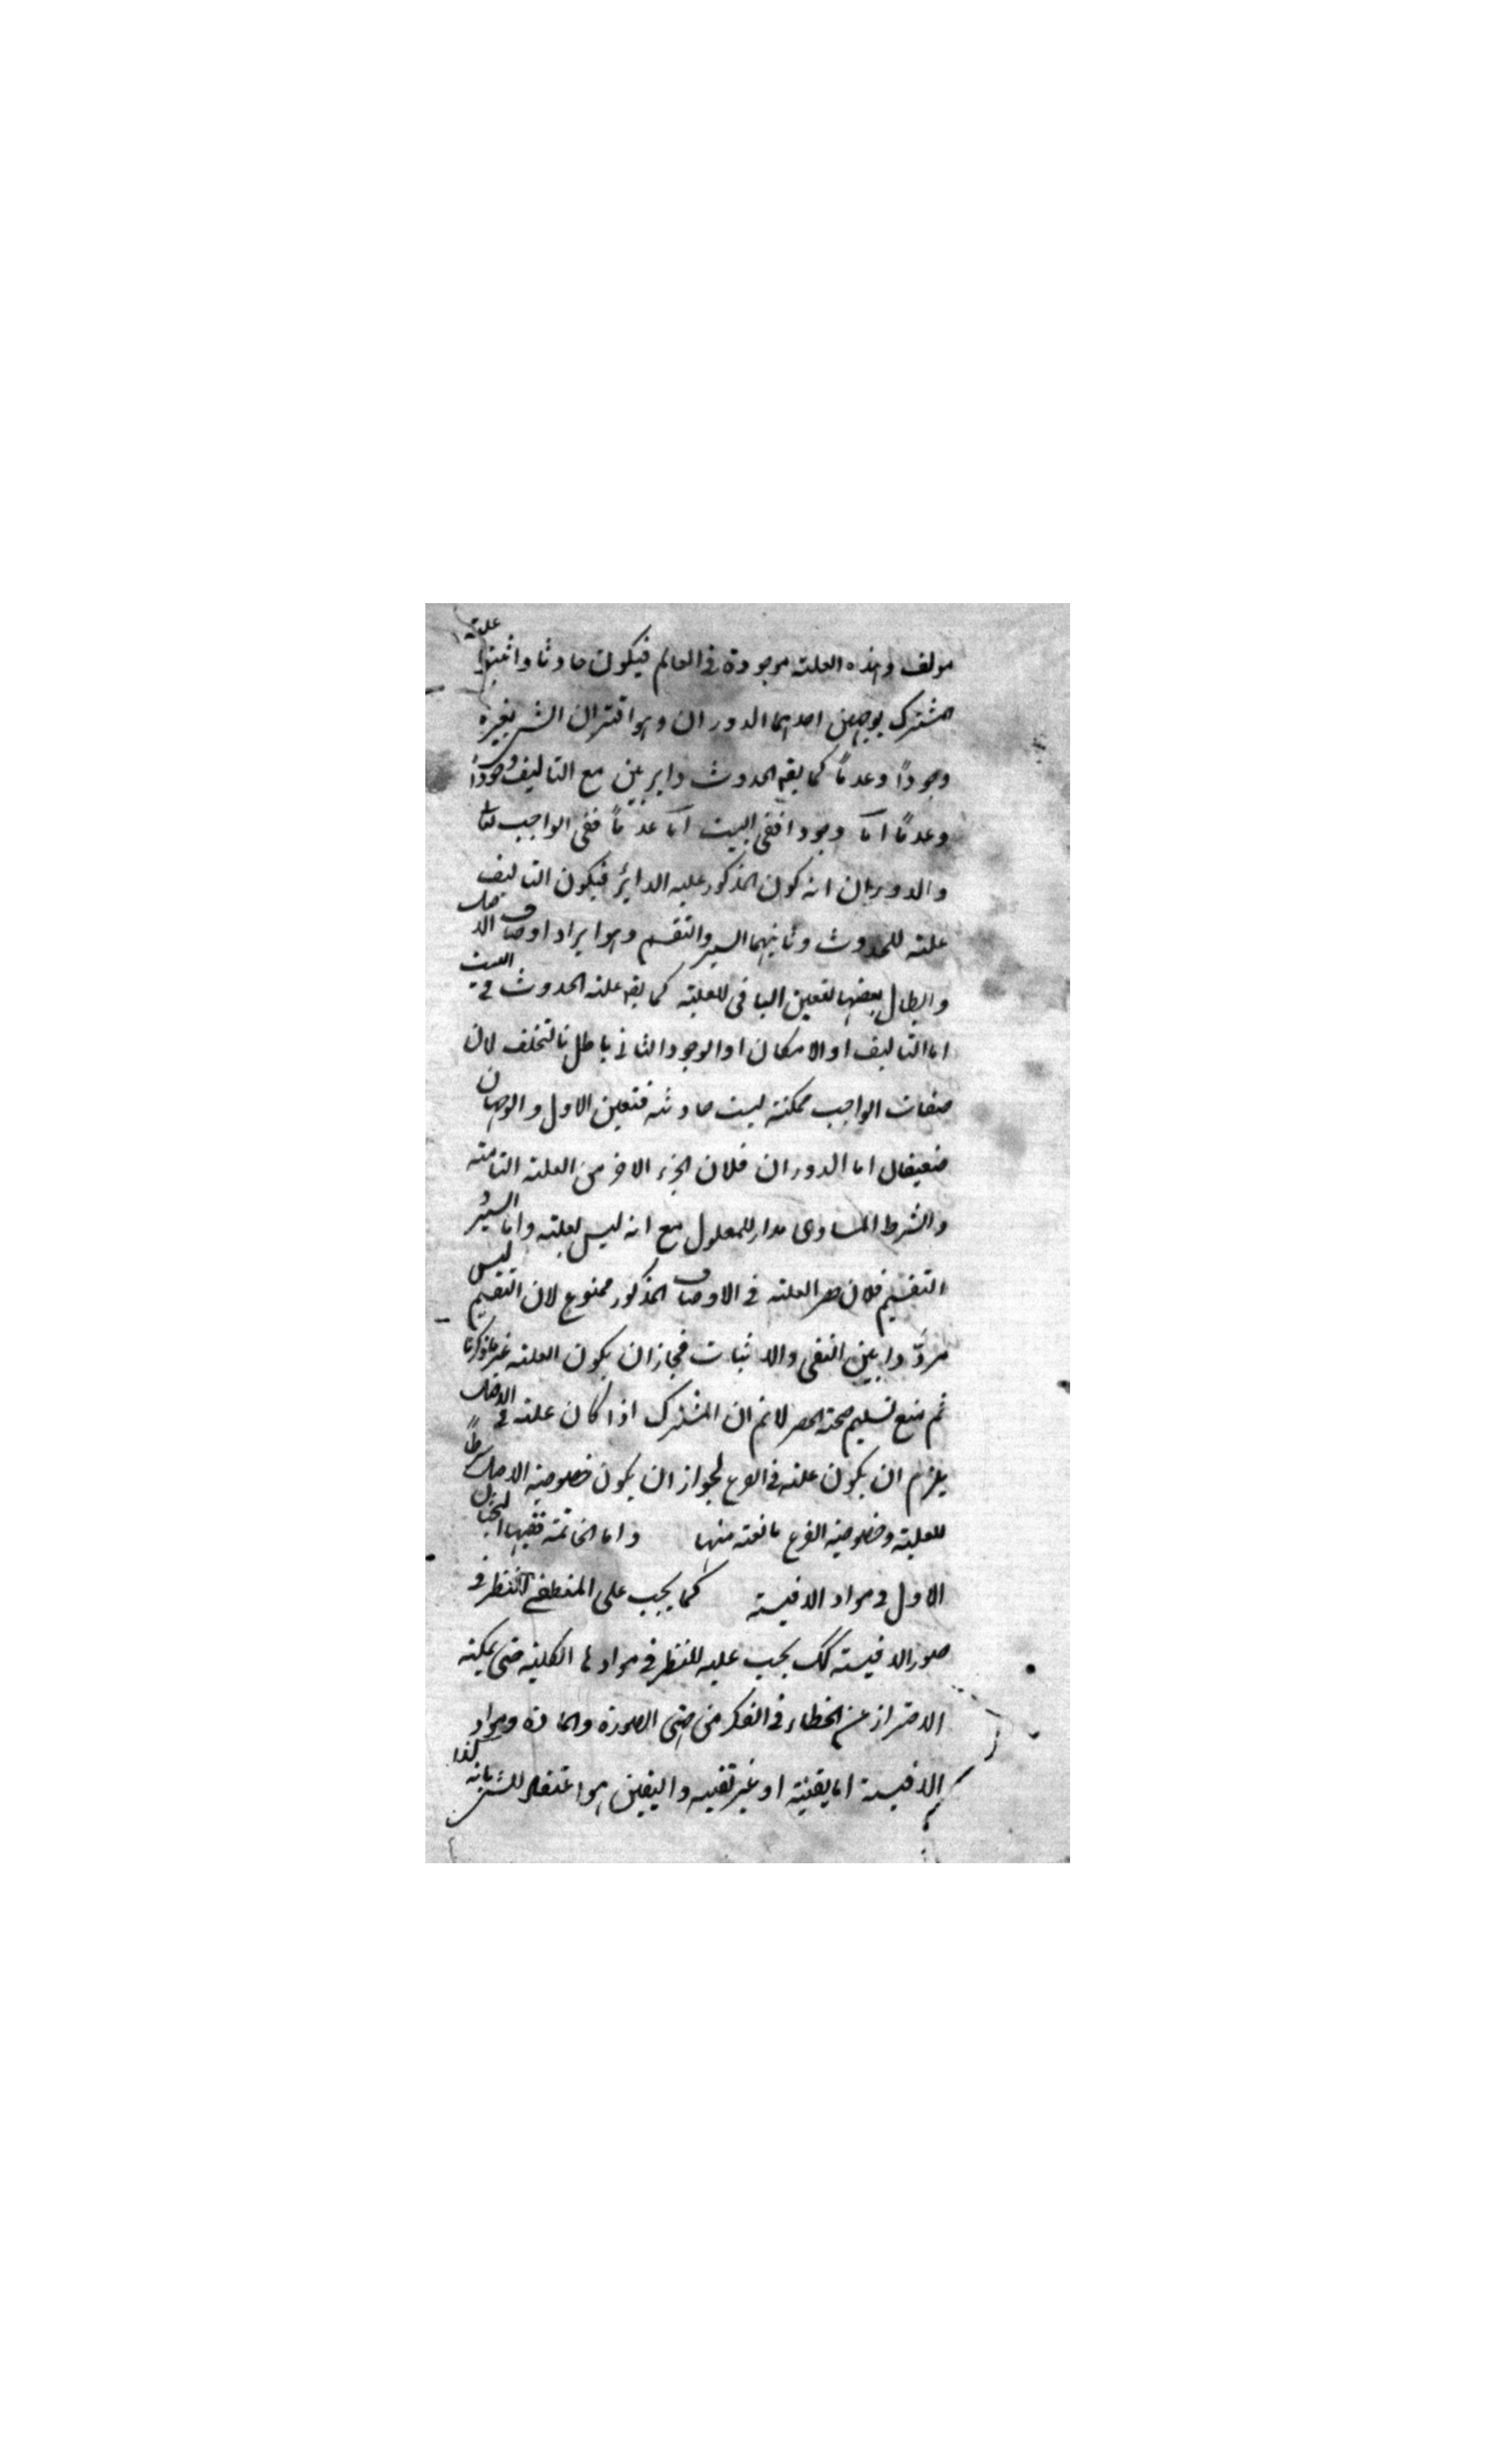 مولف وهذه العلة موجودة فى العالم فيكون حادثا واثبتوا علية
المشترك بوجهين احدهما الدوران وهو اقتران الشئ بغيره
وجوداً وعدماً كما يقم الحدوث داير مع التاليف وجوداً
وعدماً اما وجودا ففى البيت اما عدماً ففى الواجب تعا
والدوران انه كون المذكور علية الداير فيكون التاليف
علة للحدوث وثانيهما السبر والتقسم وهو ايراد اوصاف الاصل
وابطال بعضها لتعين الباقى للعلية كما يقم علة الحدوث فى البيت
اما التاليف او الامكان او الوجود الثانى باطل بالتخلف لان
صفات الواجب ممكنة ليست حادثه فتعين الاول والوجهان
ضعيفان اما الدوران فلان الجزء الاخر من العلة التامة
والشرط المساوى مدار للمعلول مع انه ليس لعلية واما السبر و
التقسيم فلان حصر العلة فى الاوصاف المذكور ممنوع لان التقسيم ليس
مردّدا بين النفى والاثبات فجاز ان يكون العلة غير ما ذكرنا
ثم منع تسليم صحة الحصر لانم ان المشترك اذا كان علة فى الاصل
يلزم ان يكون علة فى الفرع لجواز ان يكون خصوصية الاصل شرطاً
للعلية وخصوصية الفرع مانعة منها واما الخاتمة ففيها البحثان
الاول فى مواد الاقيسة كما يجب على المنطقى النظر فى
صور الاقيسة كك يجب عليه النظر فى موادها الكلية حتى يمكنه
الاحتراز عن الخطاء فى الفكر من جهتى الصورة والمادة ومواد
الاقيسة اما يقينية او غير يقنيه واليقين هو اعتقاد الشئ بانه كذا